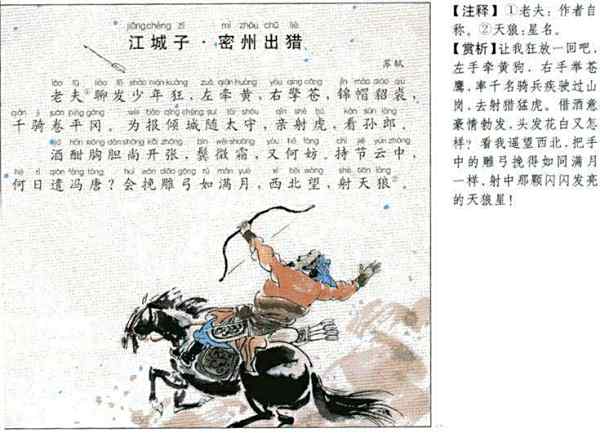 jiāng chéng zǐ mì zhōu chū liè
江城子·密州出猎
苏轼
lǎo fū liáo fā shào nián kuáng zuǒ qiān huáng yòu qíng cāng jǐn mào diāo qiú
老夫①聊发少年狂,左牵黄,右擎苍,锦帽貂裘,
qiān jì juǎn píng gāng wèi bào qīng chéng suí tài shǒu qīn shè hǔ kàn sūn láng
千骑卷平冈。为报倾城随太守,亲射虎,看孙郎。
jiǔ hān xiōng dǎn shàng kāi zhāng bìn wēi shuāng yòu hé fáng chí jié yún zhōng
酒酣胸胆尚开张,鬓微霜,又何妨。持节云中,
hé rì qiǎn féng táng huì wǎn diāo gōng rú mǎn yuè xī běi wàng shè tiān láng
何日遣冯唐?会挽雕弓如满月,西北望,射天狼②。
【注释】①老夫:作者自
称。②天狼:星名。
【赏析】让我狂放一回吧,
左手牵黄狗,右手举苍
鹰,率千名骑兵疾驶过山
岗,去射猎猛虎。借酒意
豪情勃发,头发花白又怎
样?看我遥望西北,把手
中的雕弓挽得如同满月
一样,射中那颗闪闪发亮
的天狼星!